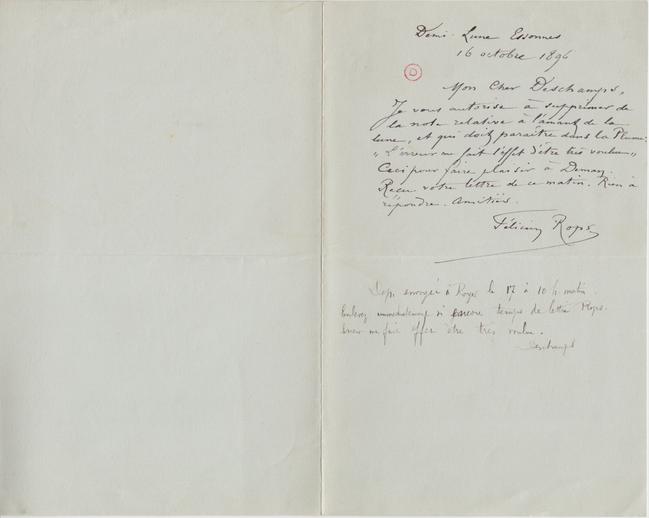 Demi-Lune Essonnes
16 octobre 1896
D
Mon Cher Deschamps,
Je vous autorise à supprimer de
la note relative à l'amant de la
lune, et qui doit paraître dans la Plume:
"L'erreur me fait l'effet d'être très voulue"
Ceci pour faire plaisir à Deman.
Reçu votre lettre de ce matin. Rien à
répondre. Amitiés.
Félicien Rops
envoyée à Rops le 17 à 10 h matin.
Enlevez immédiatement si encore temps de lettre Rops.
erreur me fait effet être très voulue.
Deschamps